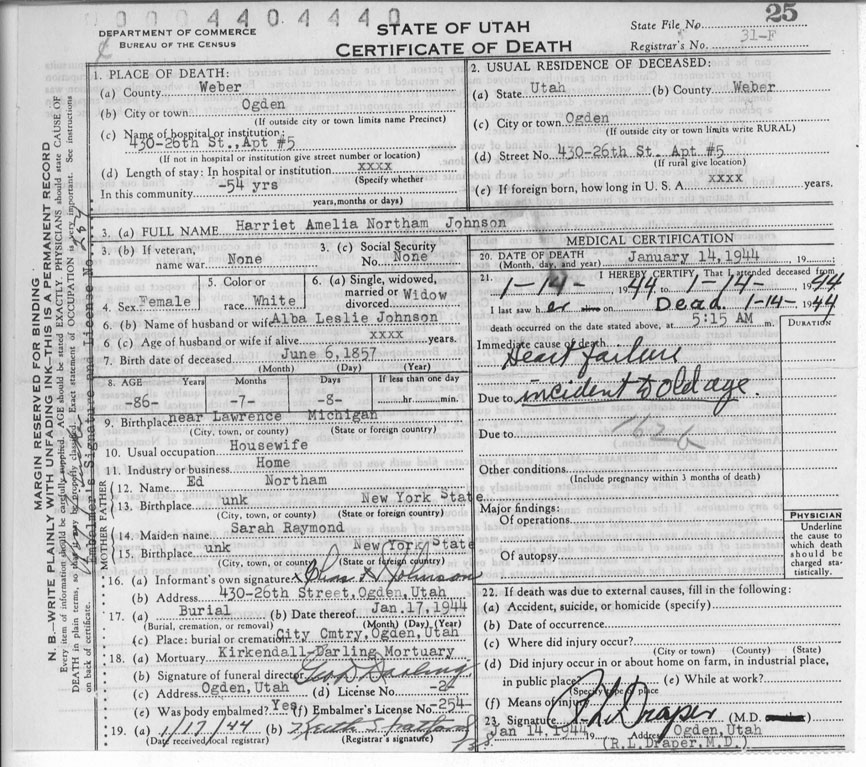 0 0 0 4 4 0 4 4 4 0
25
DEPARTMENT OF COMMERCE
BUREAU OF THE CENSUS
STATE OF UTAH
CERTIFICATE OF DEATH
State File No.
Registrar's No. 31-F
MARGIN RESERVED FOR BINDING
N. B.—WRITE PLAINLY WITH UNFADING INK—THIS IS A PERMANENT RECORD
Every item of information should be carefully supplied. AGE should be stated EXACTLY. PHYSICIANS should state CAUSE OF
DEATH in plain terms, so that it may be properly classified. Exact statement of OCCUPATION is very important. See instructions
on back of certificate.
Embalmer's Signature and License No.
1. PLACE OF DEATH:
(a) County Weber
(b) City or town Ogden
(If outside city or town limits name Precinct)
(c) Name of hospital or institution:
430-26th St.,Apt #5
(If not in hospital or institution give street number or location)
(d) Length of stay: In hospital or institution xxxx
(Specify whether
In this community -54 yrs
years, months or days)
2. USUAL RESIDENCE OF DECEASED:
(a) State Utah (b) County Weber
(c) City or town Ogden
(If outside city or town limits write RURAL)
(d) Street No. 430-26th St. Apt #5
(If rural give location)
(e) If foreign born, how long in U. S. A. xxxx years.
3. (a) FULL NAME Harriet Amelia Northam Johnson
3. (b) If veteran, name war None
3. (c) Social Security No. None
4. Sex Female
5. Color or race White
6. (a) Single, widowed, married or divorced Widow
6. (b) Name of husband or wife Alba Leslie Johnson
6. (c) Age of husband or wife if alive xxxx years.
7. Birth date of deceased June 6, 1857
(Month) (Day) (Year)
8. AGE Years Months Days If less than one day
-86- -7- -8- hr. min.
9. Birthplace near Lawrence Michigan
(City, town, or county) (State or foreign country)
10. Usual occupation Housewife
11. Industry or business Home
FATHER
12. Name Ed Northam
13. Birthplace unk New York State
(City, town, or county) (State or foreign country)
MOTHER
14. Maiden name Sarah Raymond
15. Birthplace unk New York State
(City, town, or county) (State or foreign country)
16. (a) Informant's own signature x Chas A Johnson
(b) Address 430-26th Street,Ogden,Utah
17. (a) Burial (b) Date thereof Jan.17,1944
(Burial, cremation, or removal) (Month) (Day) (Year)
(c) Place: burial or cremation City Cmtry,Ogden,Utah
18. (a) Mortuary Kirkendall-Darling Mortuary
(b) Signature of funeral director Geo D Darling
(c) Address Ogden,Utah (d) License No.
(e) Was body embalmed? Yes (f) Embalmer's License No. -254-
19. (a) 1/17/44 (b) Keith S
(Date received local registrar) (Registrar's signature)
MEDICAL CERTIFICATION
20. DATE OF DEATH January 14,1944 19
(Month, day, and year)
21. I HEREBY CERTIFY, That I attended deceased from
1-14- , 1944 to 1-14- , 1944
I last saw her him on Dead. 1-14- 1944
death occurred on the date stated above, at 5:15 AM m.
DURATION
Immediate cause of death
Heart failure
Due to incident to old age.
Due to 162-b
Other conditions
(Include pregnancy within 3 months of death)
Major findings:
Of operations
Of autopsy
PHYSICIAN
Underline
the cause to
which death
should be
charged sta-
tistically.
22. If death was due to external causes, fill in the following:
(a) Accident, suicide, or homicide (specify)
(b) Date of occurrence
(c) Where did injury occur?
(City or town) (County) (State)
(d) Did injury occur in or about home on farm, in industrial place,
in public place (e) While at work?
(Specify type of place
(f) Means of injury
23. Signature R L Draper (M.D.
Jan 14,1944 19 Address Ogden,Utah
(R.L.Draper,M.D.)